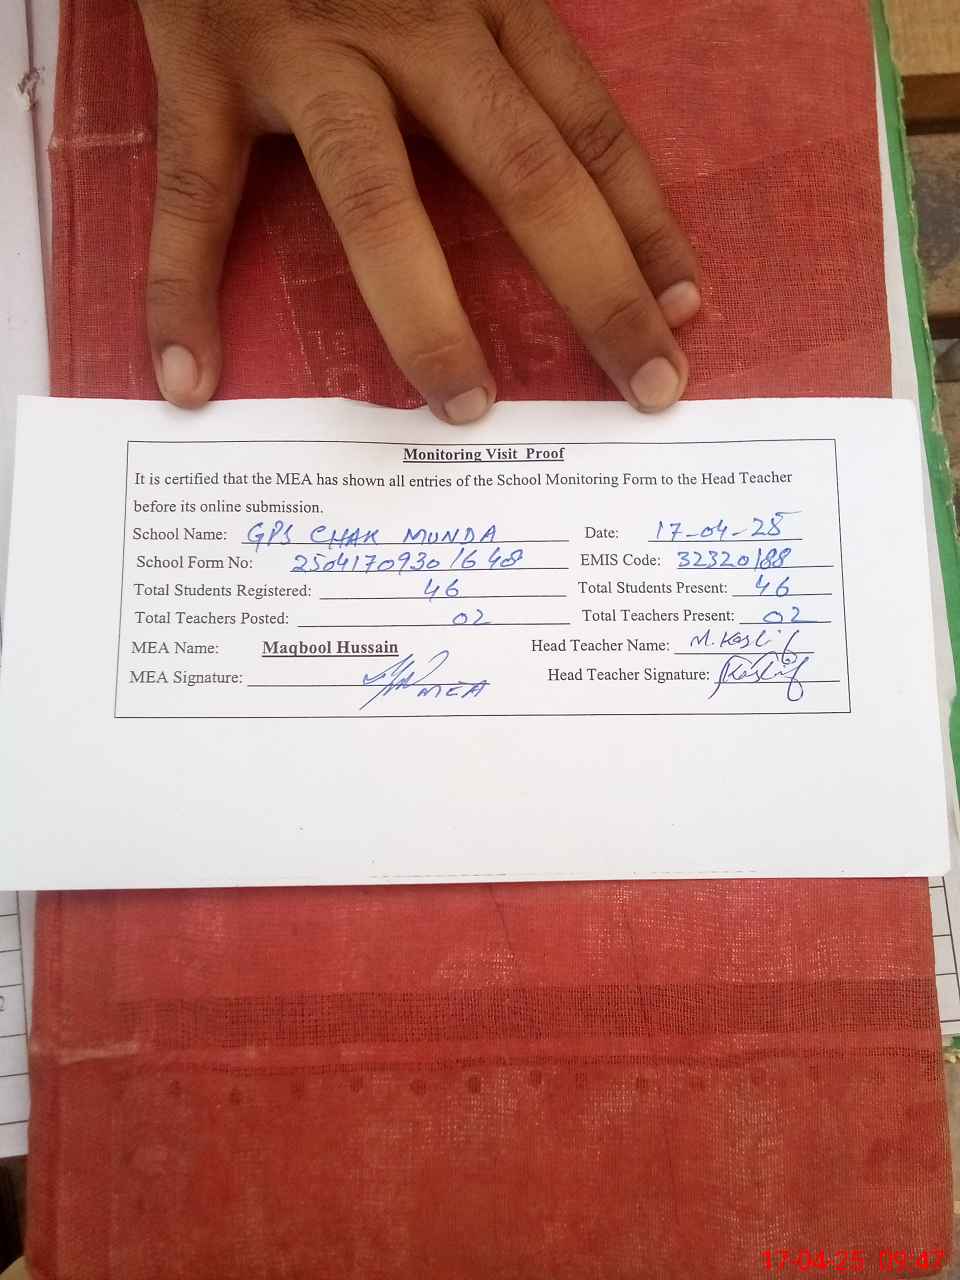 Monitoring Visit Proof
It is certified that the MEA has shown all entries of the School Monitoring Form to the Head Teacher
before its online submission.
School Name: GPS CHAK MUNDA Date: 17-04-25
School Form No: 25041709301648 EMIS Code: 32320188
Total Students Registered: 46 Total Students Present: 46
Total Teachers Posted: 02 Total Teachers Present: 02
MEA Name: Maqbool Hussain Head Teacher Name: M. Kashif
MEA Signature: MEA Head Teacher Signature: Kashif
17-04-25 09:47